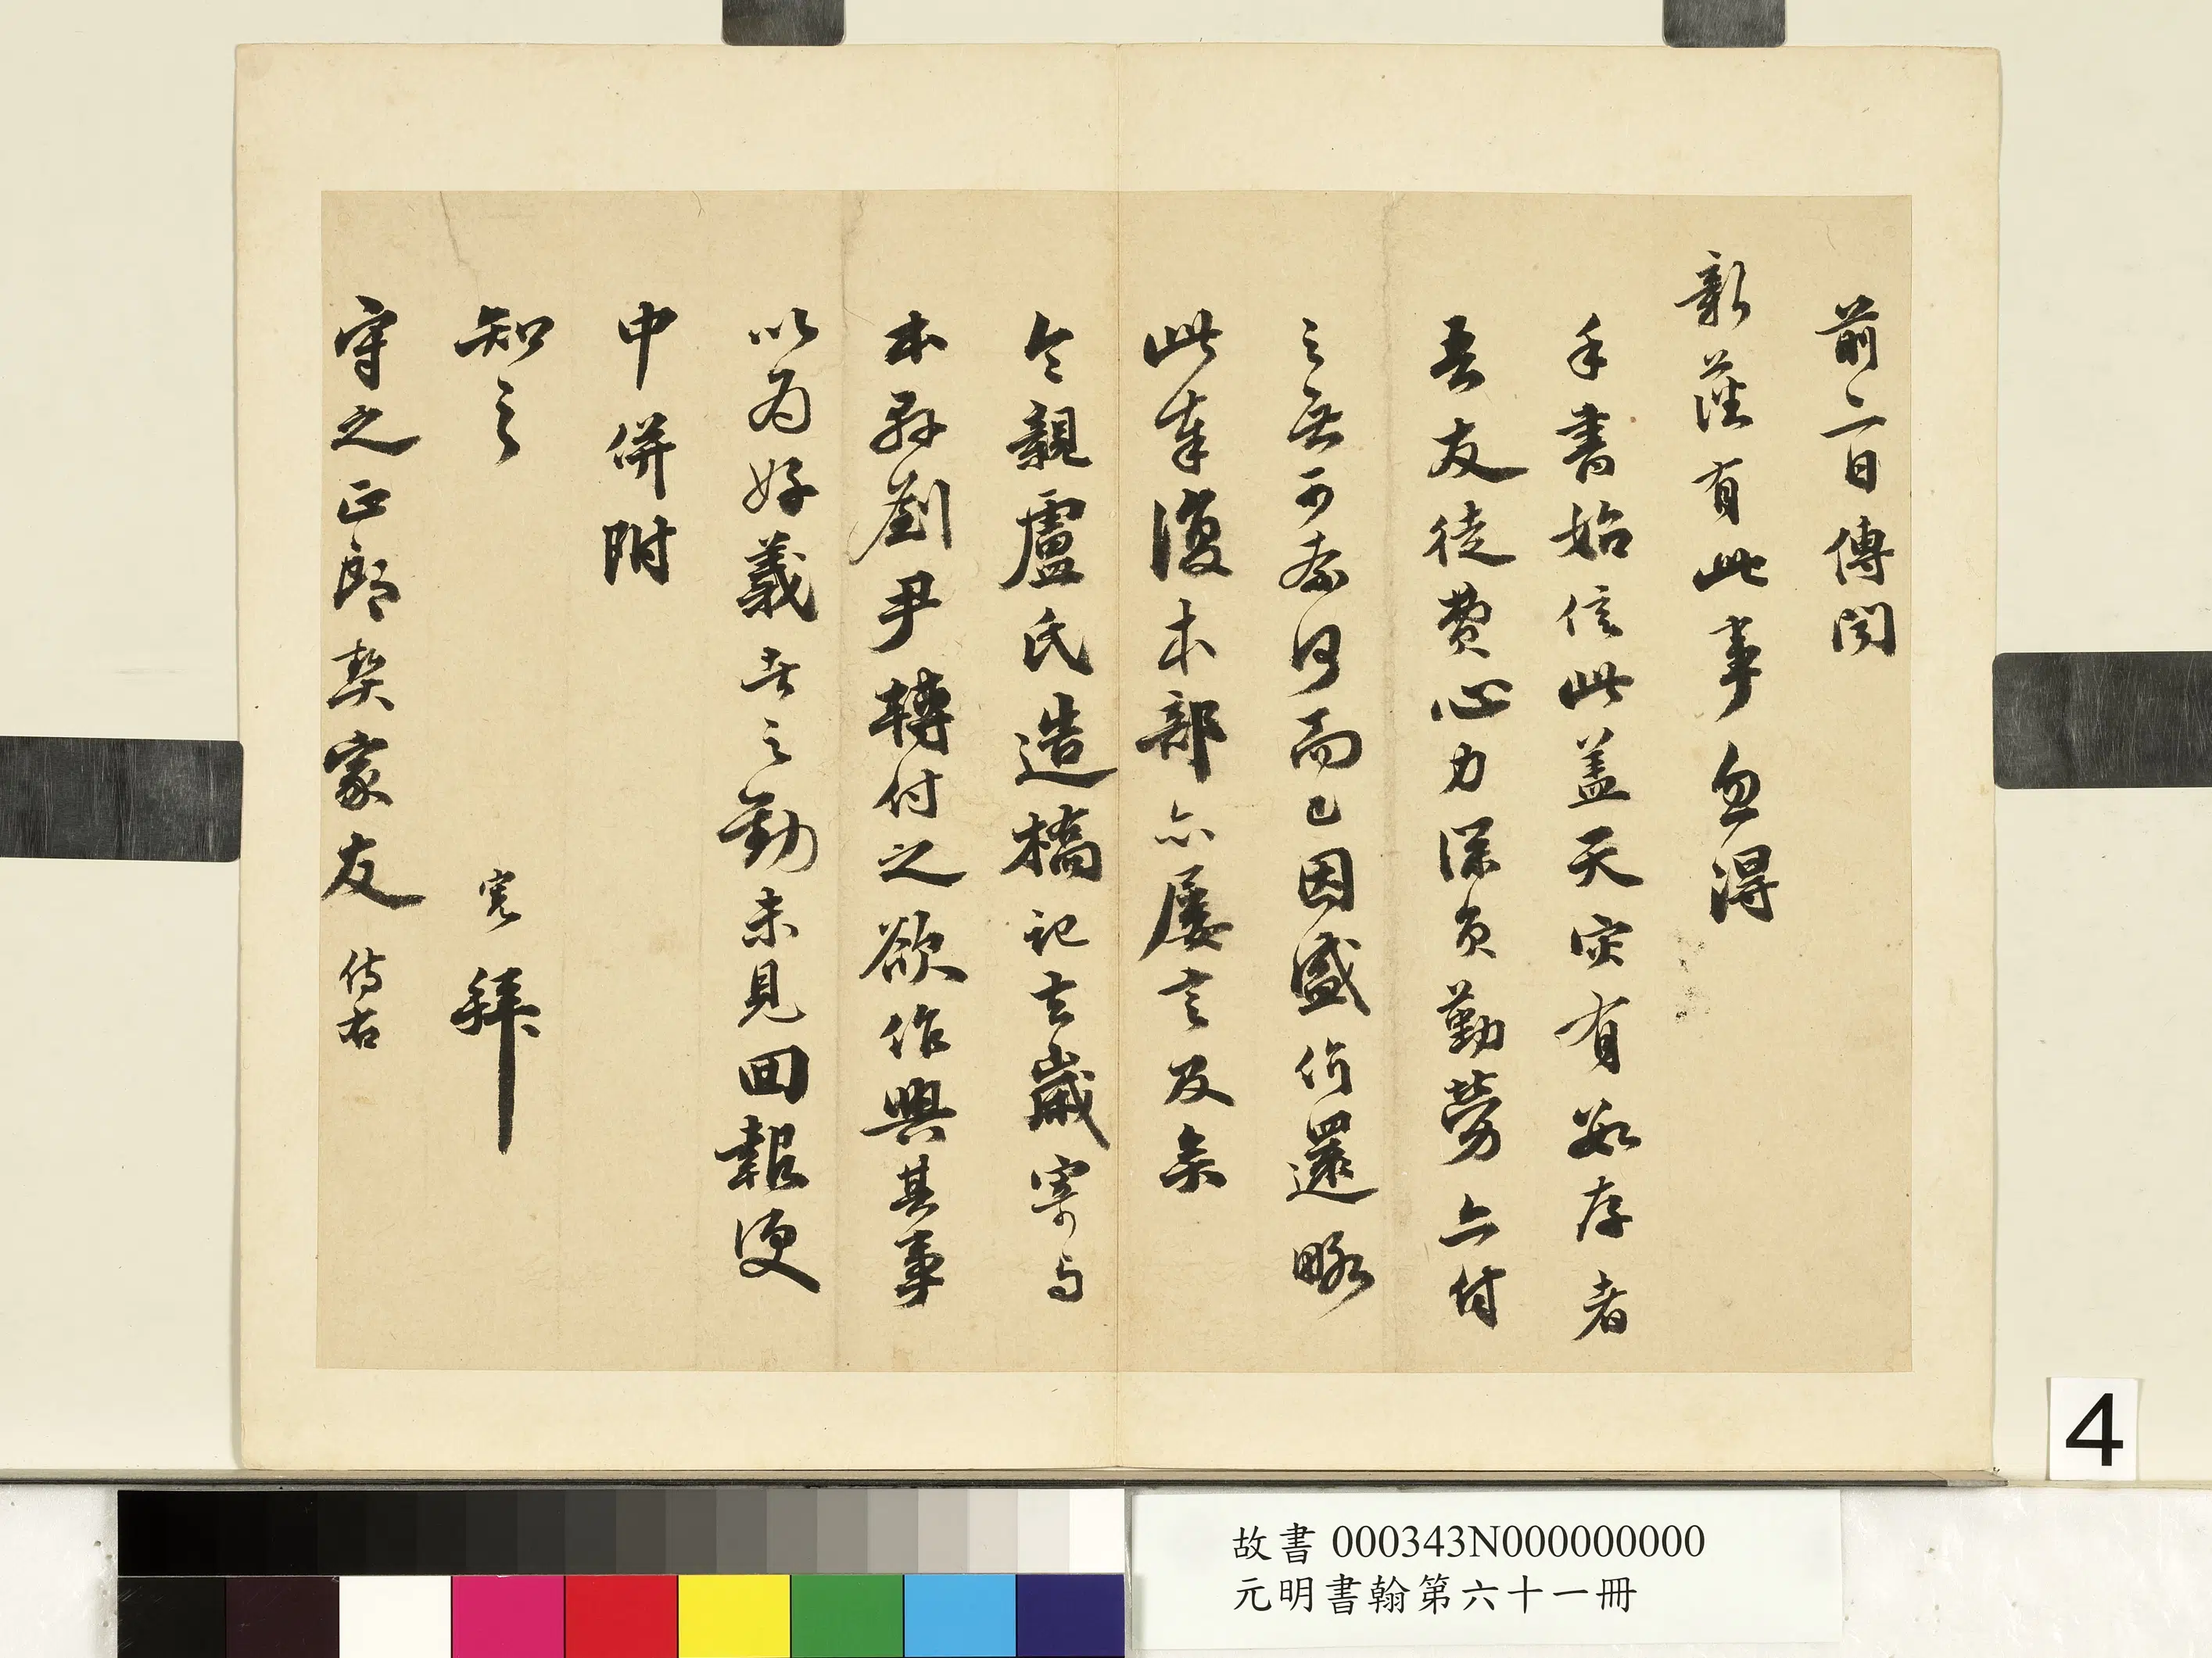 前二日傳聞
新蓙有此事忽得
手書始信此盖天灾有數存者
吾友徒費心力深負勤勞亦付
之無可奈何而已因盛价還略
此奉復本部亦屡言及矣
令親盧氏造橋記去歲寄与
本縣劉尹轉付之欲作興其事
以為好義者之勸未見回報便
中併附
知之
寛拜
守之正郎契家友侍右
4
故書 000343N000000000
元明書翰第六十一冊